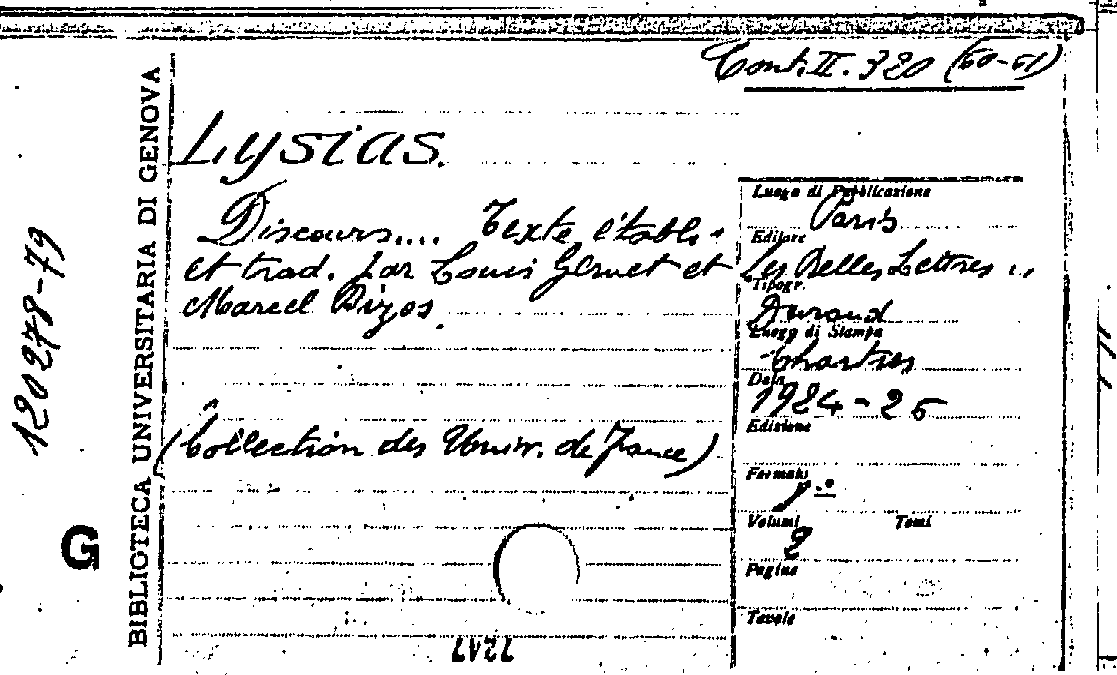 Cont. II. 320 (60-61)
Lysias.
Discours.... Texte établi
et trad. par Louis Gernet et
Marcel Bizos.
(Collection des Univ. de France)
Luogo di Pubblicazione
Paris
Editore
Les Belles Lettres
Tipogr.
Durand
Luogo di Stampa
Chartres
Data
1924-25
Edizione
Formato
Volumi
2
Tomi
Pagine
Tavole
BIBLIOTECA UNIVERSITARIA DI GENOVA
120278-79
G
7247